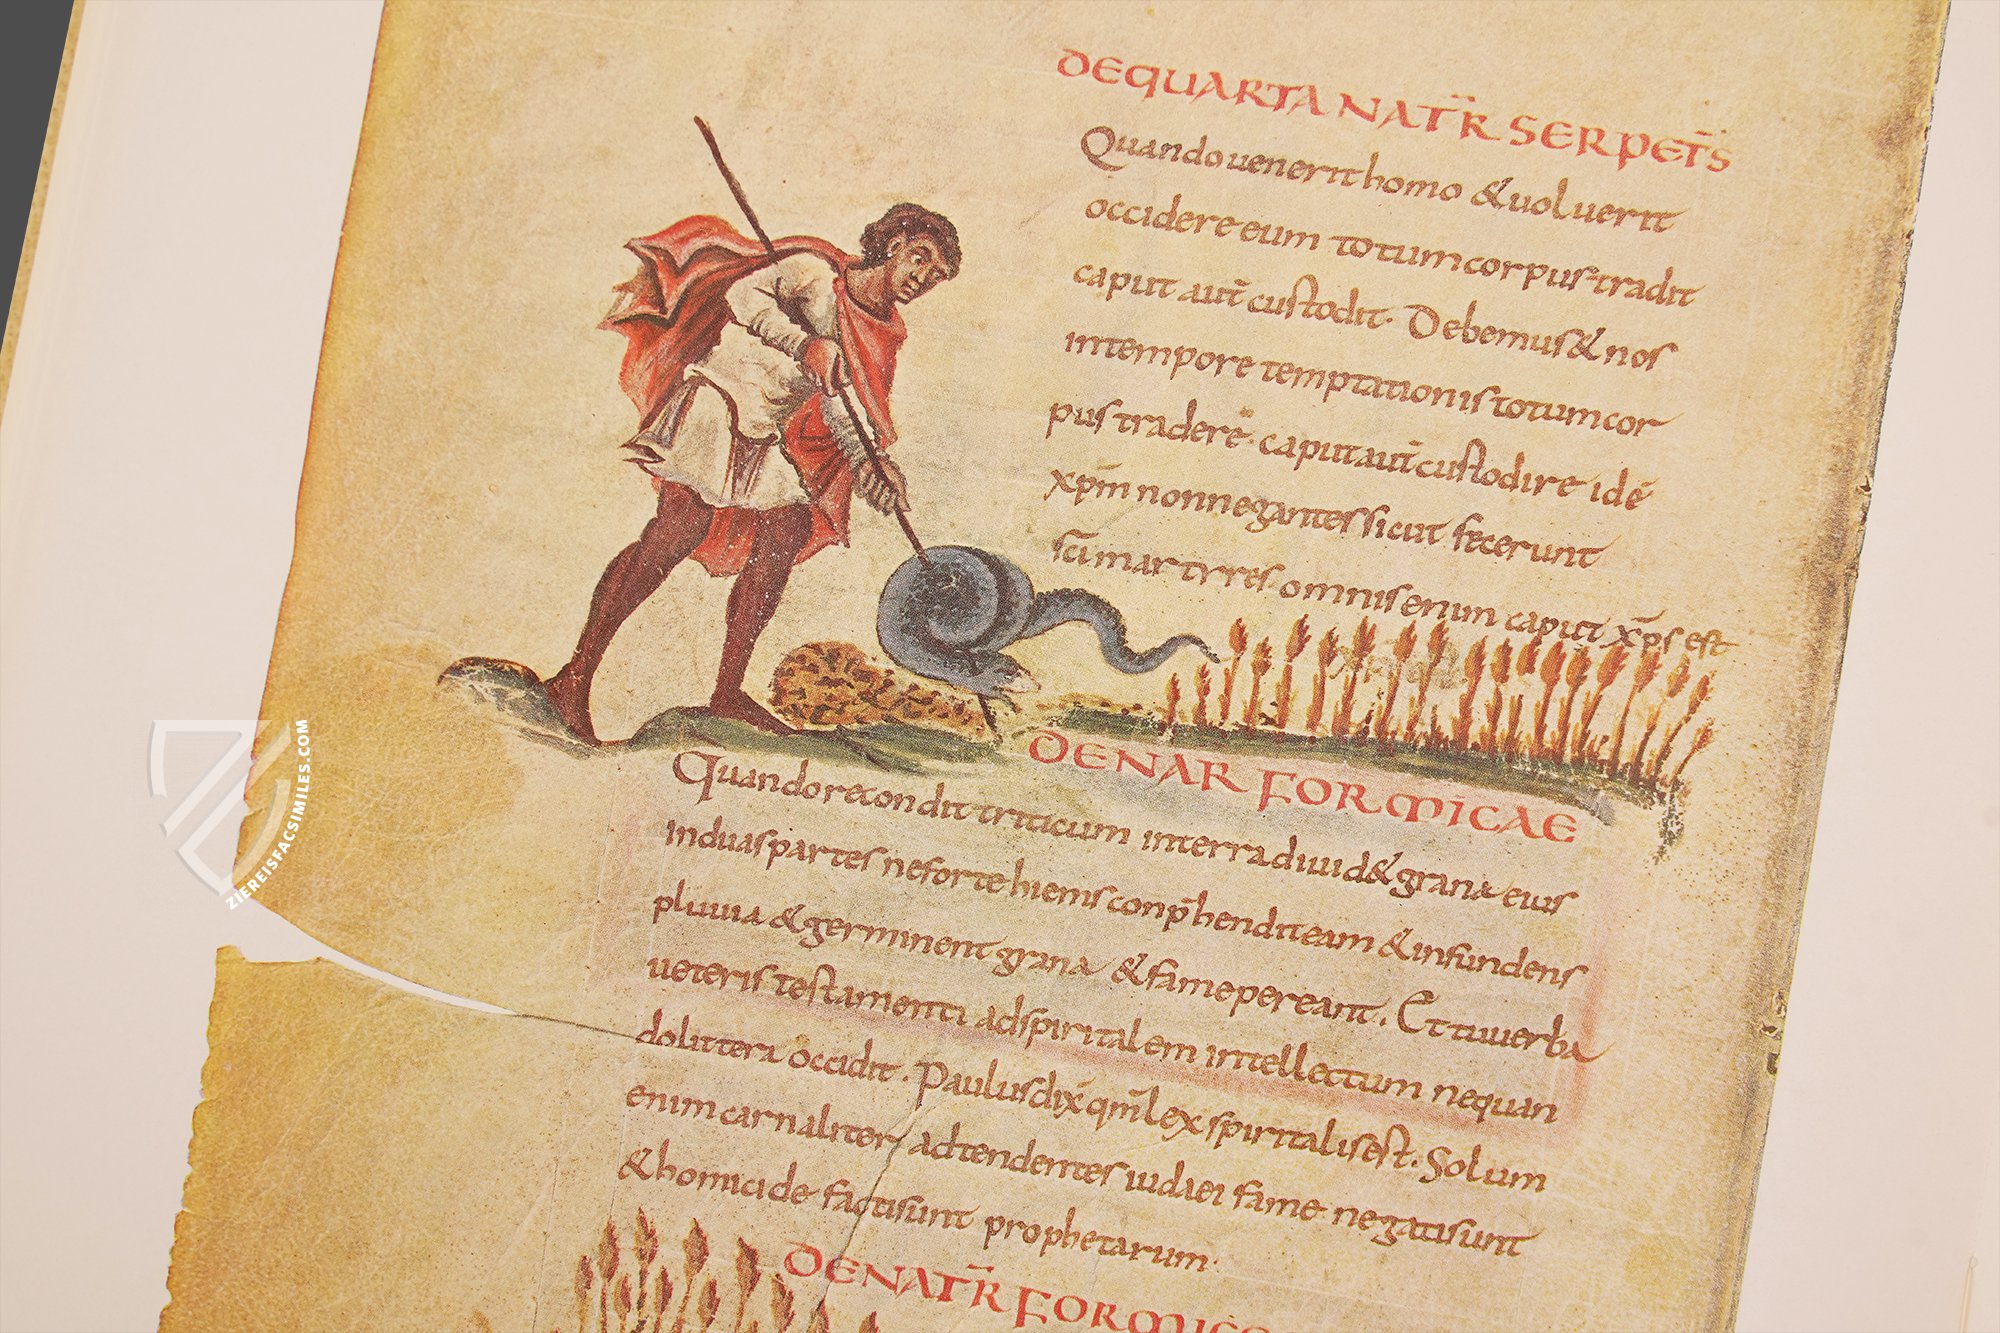 DE QUARTA NAT̄R SERPET̄S
Quando uenerit homo & uoluerit
occidere eum totum corpus tradit
caput aut̄ custodit. Debemus & nos
in tempore temptationis totum cor
pus tradere. caput aut̄ custodire idē
xpm̄ non negantes sicut fecerunt
sc̄i martyres. omnis enim caput x̄ps est
DE NAR FORMICAE
Quando recondit triticum in terra diuid& grana eius
in duas partes ne forte hiems conp̄hendit eam & infundens
pluuia & germinent grana & fame pereant. Et tu uerba
ueteris testamenti ad spiritalem intellectum ne quan
do littera occidit. Paulus dix̄ qm̄ lex spiritalis est. Solum
enim carnaliter adtendentes iudaei fame negati sunt
& homicide facti sunt prophetarum.
DE NAT̄R FORMIC
ZIEREISFACSIMILES.COM